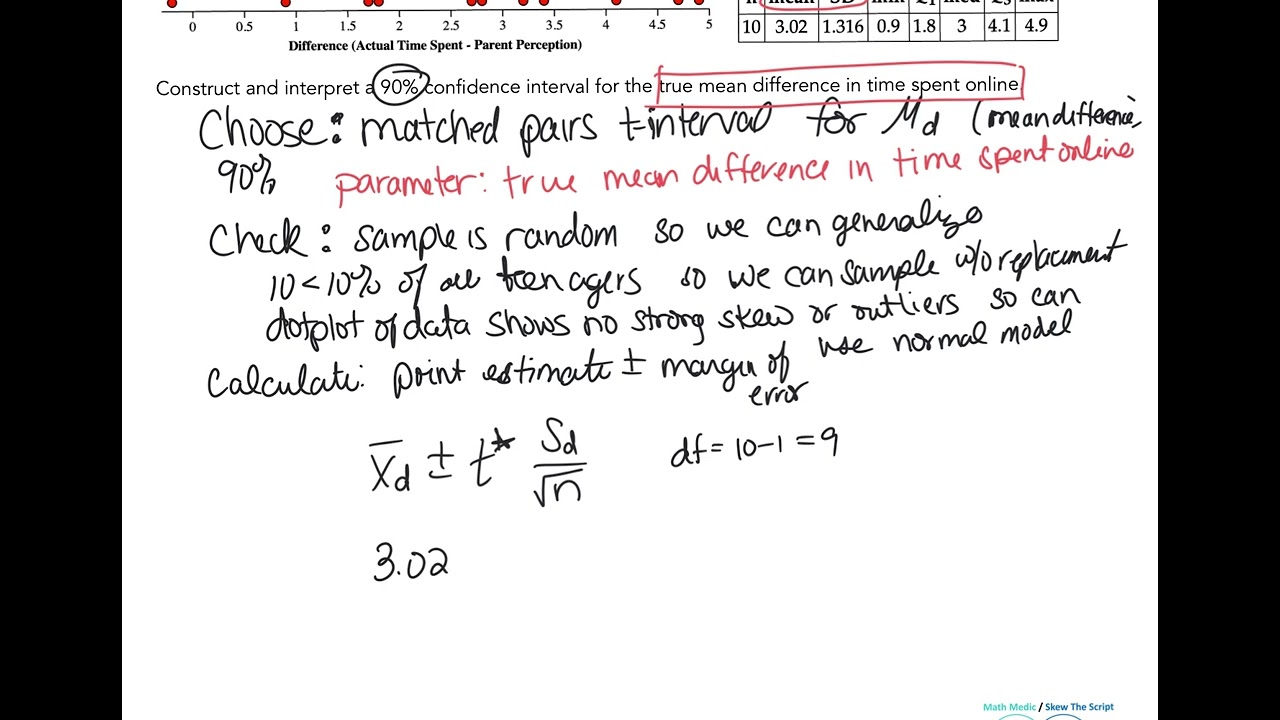 n mean SD min Q1 med Q3 max
10 3.02 1.316 0.9 1.8 3 4.1 4.9
0 0.5 1 1.5 2 2.5 3 3.5 4 4.5 5
Difference (Actual Time Spent - Parent Perception)
Construct and interpret a 90% confidence interval for the true mean difference in time spent online
Choose: matched pairs t-interval for Md (mean difference)
90% parameter: true mean difference in time spent online
Check: sample is random so we can generalize
10 < 10% of all teenagers so we can sample w/o replacement
dotplot of data shows no strong skew or outliers so can
use normal model
Calculate: point estimate ± margin of
error
x̄d ± t* Sd/√n df = 10-1 = 9
3.02
Math Medic / Skew The Script